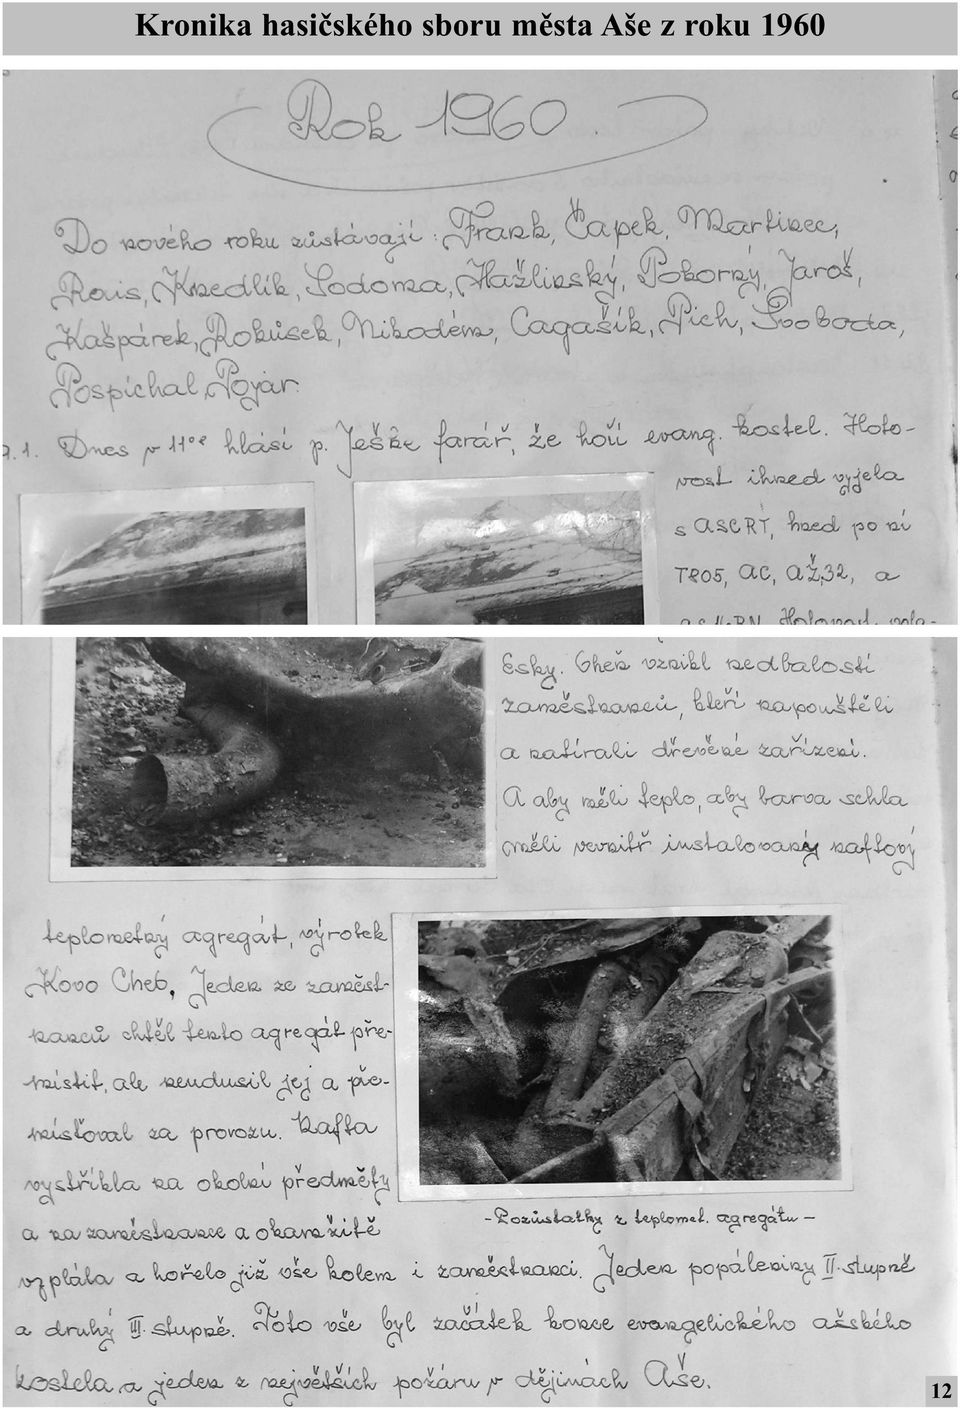 Kronika hasičského sboru města Aše z roku 1960
Rok 1960.
Do nového roku zůstávají: Frank, Čapek, Martinec,
Rais, Knedlík, Sodoma, Hažlinský, Pokorný, Jaroš,
Kašpárek, Rokůsek, Nikodém, Cagašík, Pich, Svoboda,
Pospíchal, Pojar.
1. Dnes v 11°° hlásí p. Ješke farář, že hoří evang. kostel. Hoto-
vost ihned vyjela
s ASCRT, hned po ní
T805, AC, AŽ32, a
Hotovost
česky. Oheň vznikl nedbalostí
zaměstnanců, kteří napouštěli
a natírali dřevěné zařízení.
A aby měli teplo, aby barva schla
měli vevnitř instalovaný naftový
teplometný agregát, výrobek
Kovo Cheb. Jeden ze zaměst-
nanců chtěl tento agregát pře-
místit, ale neudusil jej a pře-
mísťoval za provozu. Nafta
vystříkla na okolní předměty
a na zaměstnance a okamžitě
-Pozůstatky z teplomet. agregátu-
vzplála a hořelo již vše kolem i zaměstnanci. Jeden popáleniny II. stupně
a druhý III. stupně. Toto vše byl začátek konce evangelického ašského
kostela, a jeden z největších požáru v dějinách Aše.
12